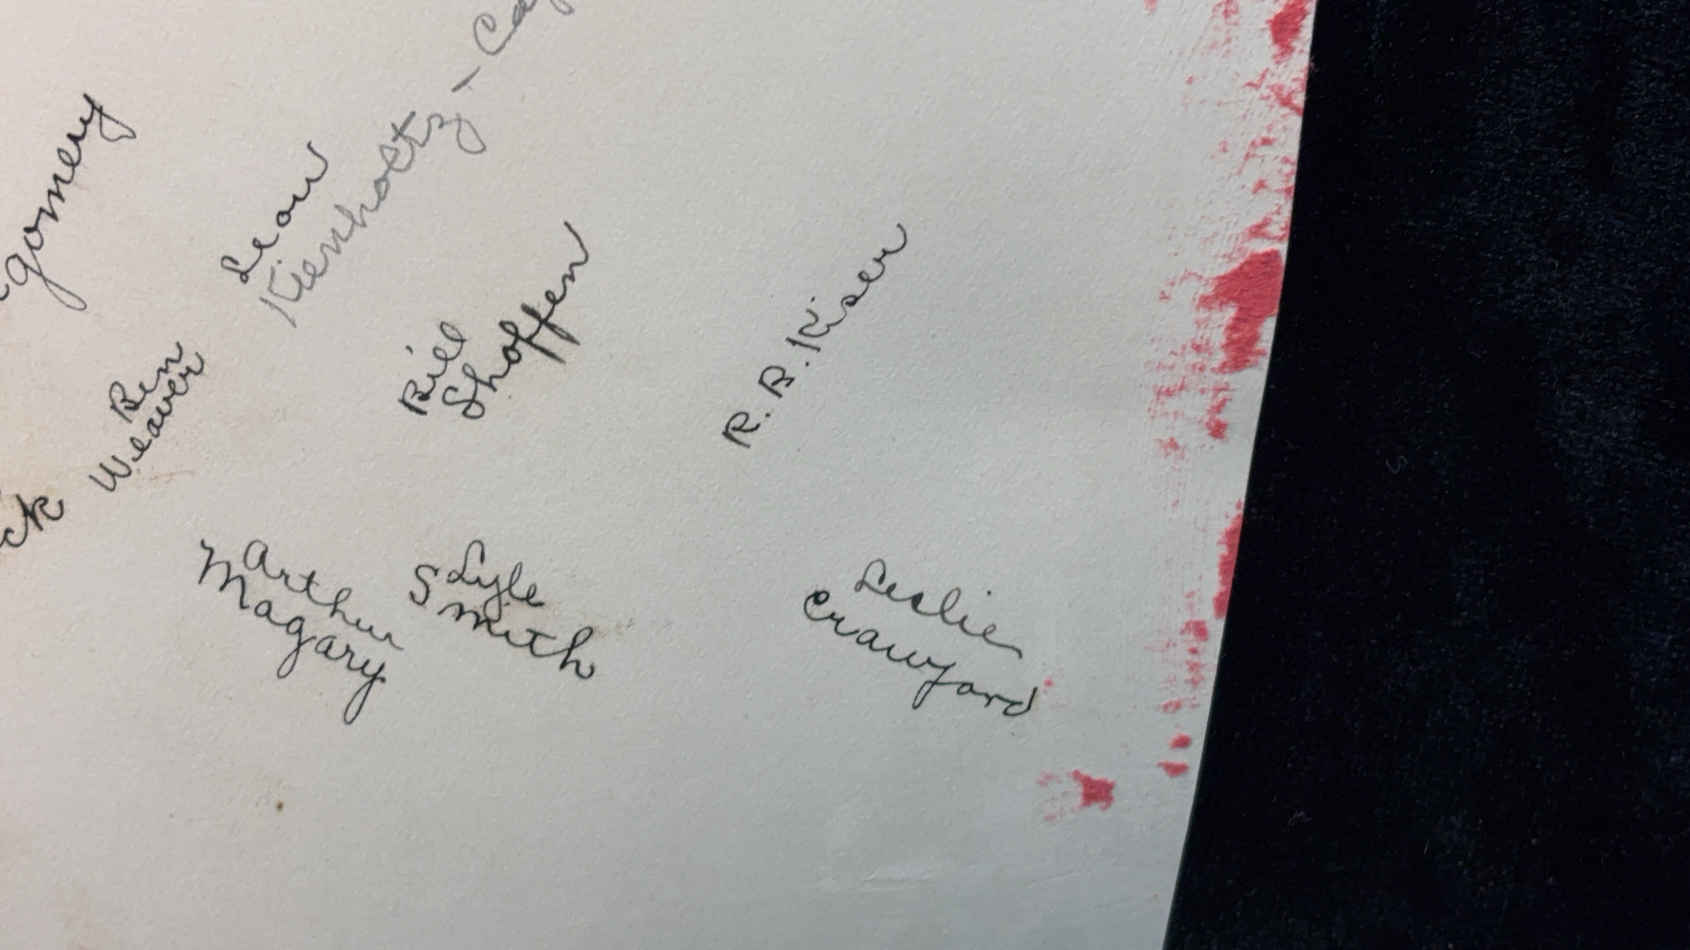 gomery
Leon
Kienholtz - Ca
Ben
Weaver
ck
Bill
Shoffen
R. B. Kiser
Arthur
Magary
Lyle
Smith
Leslie
Crawford